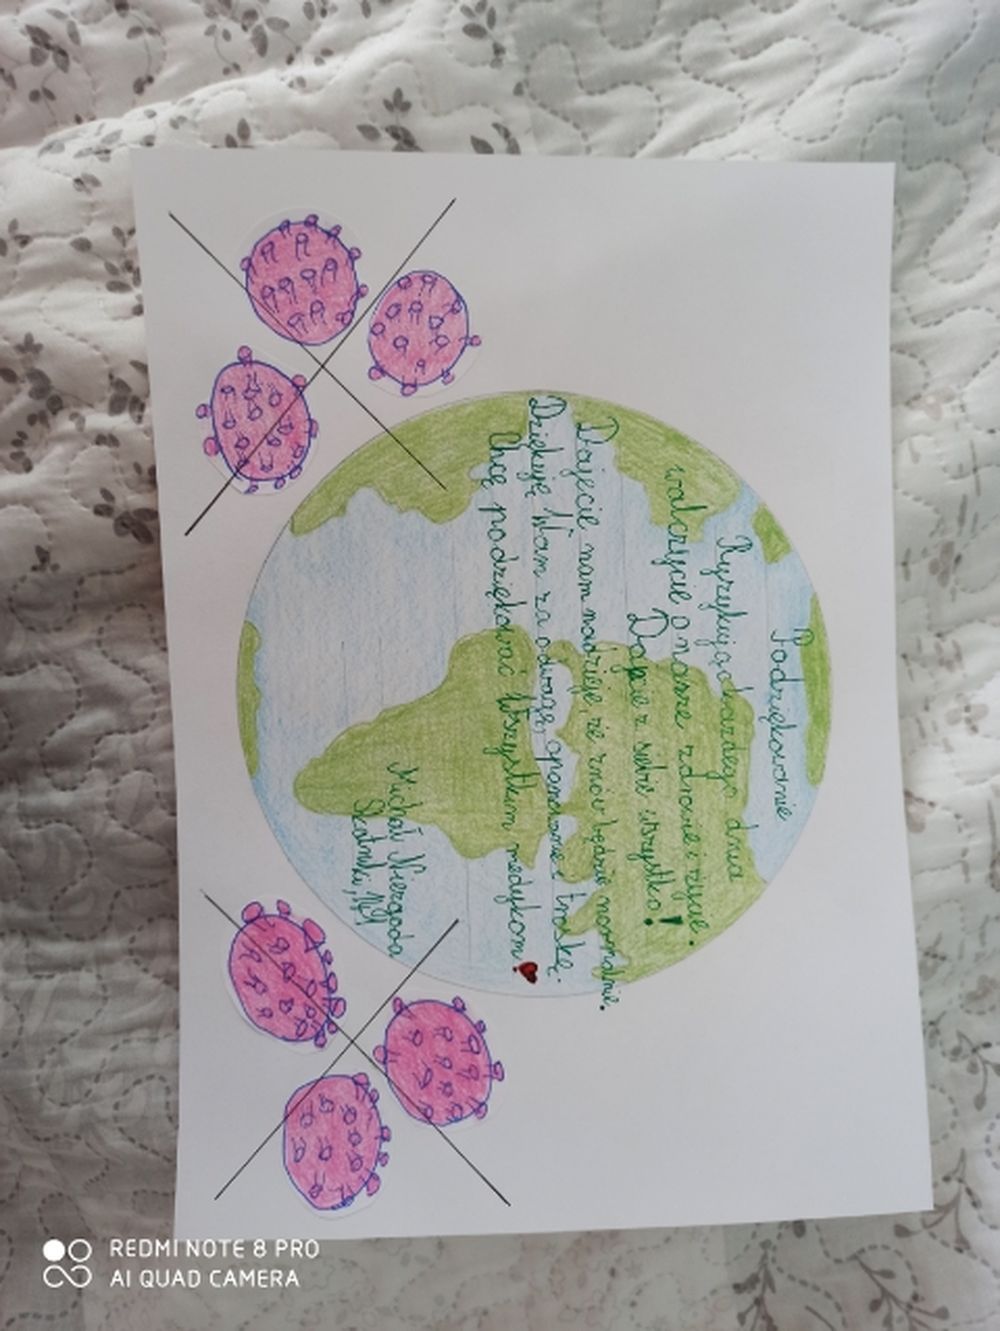 Podziękowanie
Ryzykując każdego dnia
walczycie o nasze zdrowie i życie.
z siebie wszystko!
Dajecie nam nadzieję, że znów będzie normalnie.
Dziękuję Wam za odwagę, opanowanie i troskę.
Chcę podziękować Wszystkim medykom!
Michał Niezgoda
Skotniki,
REDMI NOTE 8 PRO
AI QUAD CAMERA